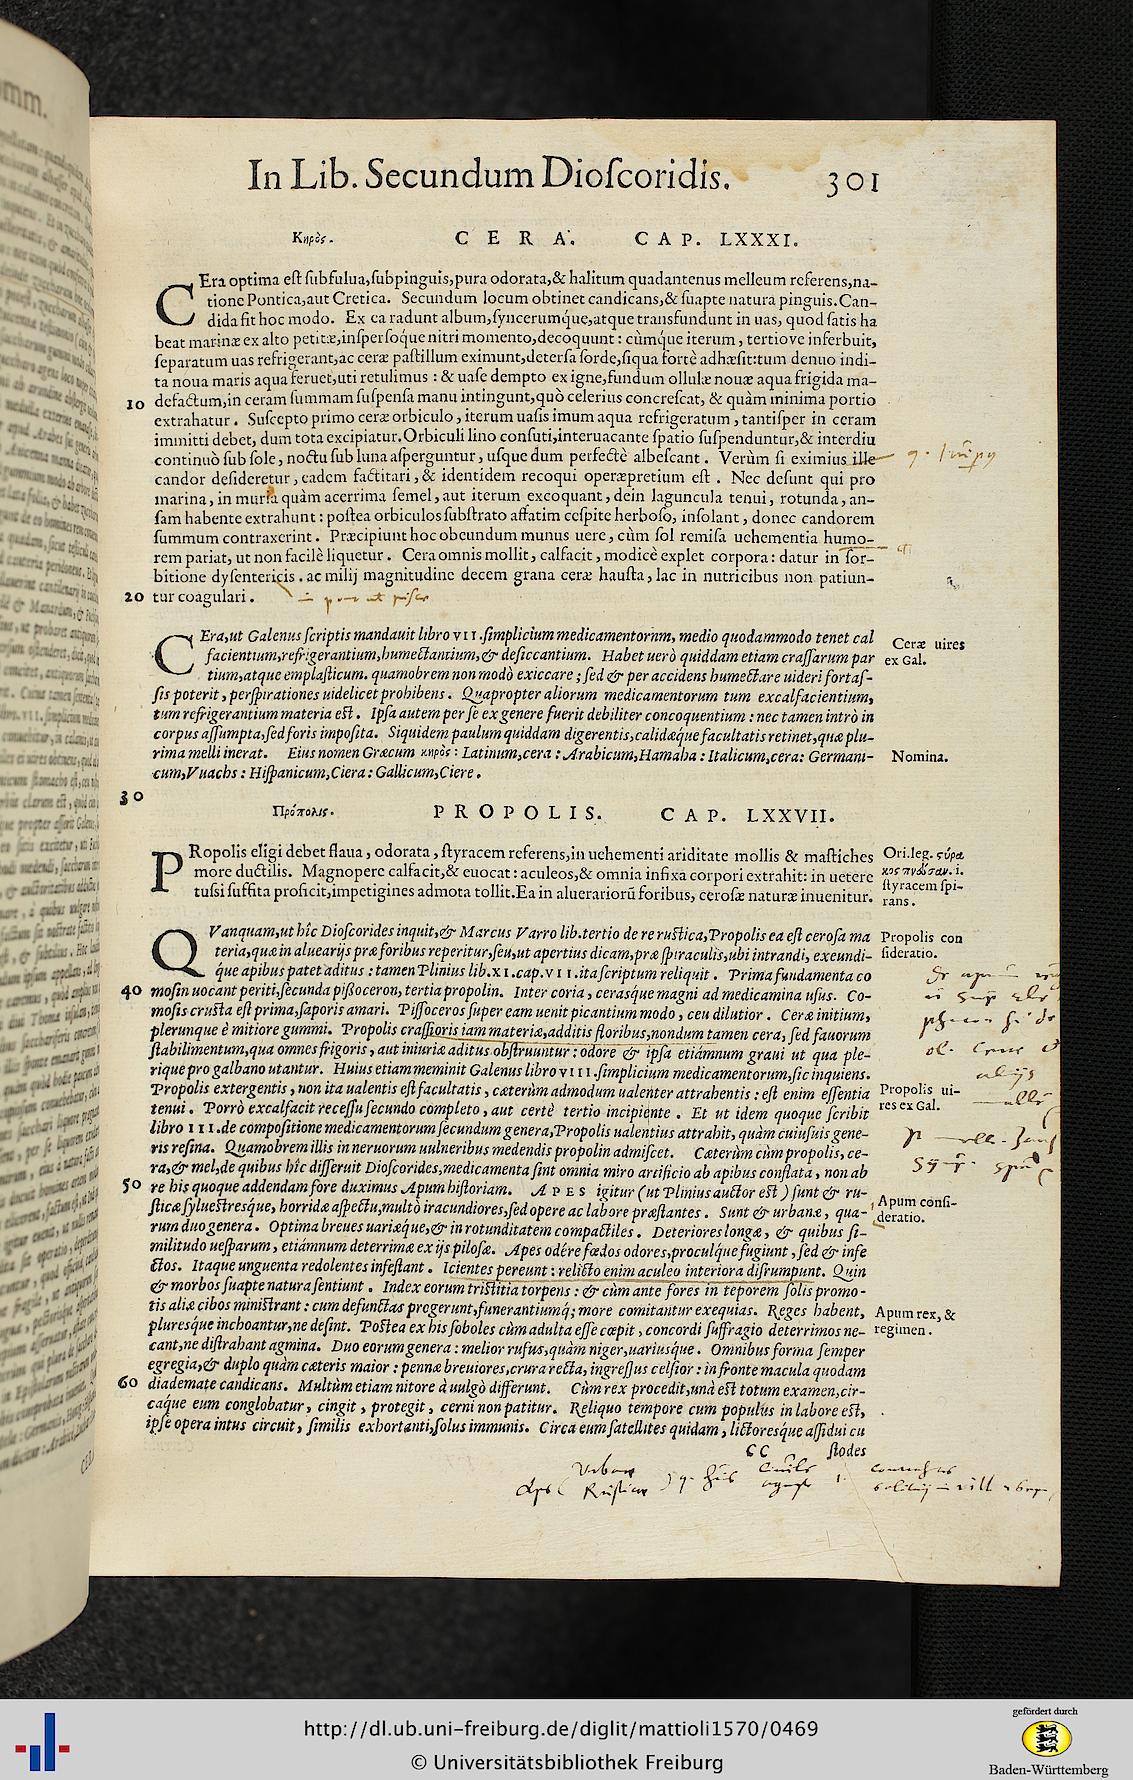 In Lib. Secundum Dioſcoridis. 301
Κηρὸς. CERA. CAP. LXXXI.
CEra optima eſt ſubfulua, ſubpinguis, pura odorata, & halitum quadantenus melleum referens, na-
tione Pontica, aut Cretica. Secundum locum obtinet candicans, & ſuapte natura pinguis. Can-
dida fit hoc modo. Ex ea radunt album, ſyncerumq́ue, atque transfundunt in uas, quod ſatis ha
beat marinæ ex alto petitæ, inſperſoque nitri momento, decoquunt: cùmq́ue iterum, tertiove inferbuit,
ſeparatum uas refrigerant, ac ceræ paſtillum eximunt, deterſa ſorde, ſiqua fortè adhæſit: tum denuo indi-
ta noua maris aqua feruet, uti retulimus: & uaſe dempto ex igne, fundum ollulæ nouæ aqua frigida ma-
10 defactum, in ceram ſummam ſuſpenſa manu intingunt, quò celerius concreſcat, & quàm minima portio
extrahatur. Suſcepto primo ceræ orbiculo, iterum uaſis imum aqua refrigeratum, tantiſper in ceram
immitti debet, dum tota excipiatur. Orbiculi lino conſuti, interuacante ſpatio ſuſpenduntur, & interdiu
continuò ſub ſole, noctu ſub luna aſperguntur, uſque dum perfectè albeſcant. Verùm ſi eximius ille
candor deſideretur, eadem factitari, & identidem recoqui operæpretium eſt. Nec deſunt qui pro
marina, in muria quàm acerrima ſemel, aut iterum excoquant, dein laguncula tenui, rotunda, an-
ſam habente extrahunt: poſtea orbiculos ſubſtrato affatim ceſpite herboſo, inſolant, donec candorem
ſummum contraxerint. Præcipiunt hoc obeundum munus uere, cùm ſol remiſa uehementia humo-
rem pariat, ut non facilè liquetur. Cera omnis mollit, calfacit, modicè explet corpora: datur in ſor-
bitione dyſentericis. ac milij magnitudine decem grana ceræ hauſta, lac in nutricibus non patiun-
20 tur coagulari.
CEra, ut Galenus ſcriptis mandauit libro VII. ſimplicium medicamentorum, medio quodammodo tenet cal
facientium, refrigerantium, humectantium, & deſiccantium. Habet uerò quiddam etiam craſſarum par
tium, atque emplaſticum. quamobrem non modò exiccare; ſed & per accidens humectare uideri fortaſ-
ſis poterit, perſpirationes uidelicet prohibens. Quapropter aliorum medicamentorum tum excalfacientium,
tum refrigerantium materia eſt. Ipſa autem per ſe ex genere fuerit debiliter concoquentium: nec tamen intrò in
corpus aſſumpta, ſed foris impoſita. Siquidem paulum quiddam digerentis, calidæque facultatis retinet, quæ plu-
rima melli inerat. Eius nomen Græcum κηρὸς: Latinum, cera: Arabicum, Hamaha: Italicum, cera: Germani-
cum, Vuachs: Hiſpanicum, Ciera: Gallicum, Ciere.
Ceræ uires
ex Gal.
Nomina.
30
Πρόπολις. PROPOLIS. CAP. LXXVII.
PRopolis eligi debet flaua, odorata, ſtyracem referens, in uehementi ariditate mollis & maſtiches
more ductilis. Magnopere calfacit, & euocat: aculeos, & omnia infixa corpori extrahit: in uetere
tuſsi ſuffita proficit, impetigines admota tollit. Ea in alueariorũ foribus, ceroſæ naturæ inuenitur.
Ori. leg.
i.
ſtyracem ſpi-
rans.
QVanquam, ut hîc Dioſcorides inquit, & Marcus Varro lib. tertio de re ruſtica, Propolis ea eſt ceroſa ma
teria, quæ in aluearijs præ foribus reperitur, ſeu, ut apertius dicam, præ ſpiraculis, ubi intrandi, exeundi-
q́ue apibus patet aditus: tamen Plinius lib. XI. cap. VII. ita ſcriptum reliquit. Prima fundamenta co
40 moſin uocant periti, ſecunda pißoceron, tertia propolin. Inter coria, cerasq́ue magni ad medicamina uſus. Co-
moſis cruſta eſt prima, ſaporis amari. Piſſoceros ſuper eam uenit picantium modo, ceu dilutior. Ceræ initium,
plerunque è mitiore gummi. Propolis craſſioris iam materiæ, additis floribus, nondum tamen cera, ſed fauorum
ſtabilimentum, qua omnes frigoris, aut iniuriæ aditus obſtruuntur: odore & ipſa etiámnum graui ut qua ple-
rique pro galbano utantur. Huius etiam meminit Galenus libro VIII. ſimplicium medicamentorum, ſic inquiens.
Propolis extergentis, non ita ualentis eſt facultatis, cæterùm admodum ualenter attrahentis: eſt enim eſſentia
tenui. Porrò excalfacit receſſu ſecundo completo, aut certè tertio incipiente. Et ut idem quoque ſcribit
libro III. de compoſitione medicamentorum ſecundum genera, Propolis ualentius attrahit, quàm cuiuſuis gene-
ris reſina. Quamobrem illis in neruorum uulneribus medendis propolin admiſcet. Cæterùm cùm propolis, ce-
ra, & mel, de quibus hîc diſſeruit Dioſcorides, medicamenta ſint omnia miro artificio ab apibus conſtata, non ab
50 re his quoque addendam fore duximus Apum hiſtoriam. APES igitur (ut Plinius auctor eſt) ſunt & ru-
ſticæ ſylueſtresque, horridæ aſpectu, multò iracundiores, ſed opere ac labore præſtantes. Sunt & urbanæ, qua-
rum duo genera. Optima breues uariæque, & in rotunditatem compactiles. Deteriores longæ, & quibus ſi-
militudo ueſparum, etiámnum deterrimæ ex ijs piloſæ. Apes odére fœdos odores, proculq́ue fugiunt, ſed & inſe
ctos. Itaque unguenta redolentes infeſtant. Icientes pereunt: relicto enim aculeo interiora diſrumpunt. Quin
& morbos ſuapte natura ſentiunt. Index eorum triſtitia torpens: & cùm ante fores in teporem ſolis promo-
tis aliæ cibos miniſtrant: cum defunctas progerunt, funerantiumq́; more comitantur exequias. Reges habent,
pluresque inchoantur, ne deſint. Poſtea ex his ſoboles cùm adulta eſſe cœpit, concordi ſuffragio deterrimos ne-
cant, ne diſtrahant agmina. Duo eorum genera: melior rufus, quàm niger, uariusque. Omnibus forma ſemper
egregia, & duplo quàm cæteris maior: pennæ breuiores, crura recta, ingreſſus celſior: in fronte macula quodam
60 diademate candicans. Multùm etiam nitore à uulgò differunt. Cùm rex procedit, unà eſt totum examen, cir-
caque eum conglobatur, cingit, protegit, cerni non patitur. Reliquo tempore cum populus in labore eſt,
ipſe opera intus circuit, ſimilis exhortanti, ſolus immunis. Circa eum ſatellites quidam, lictoresque aſſidui cu
CC ſtodes
Propolis con
ſideratio.
Propolis ui-
res ex Gal.
Apum conſi-
deratio.
Apum rex, &
regimen.
http://dl.ub.uni-freiburg.de/diglit/mattioli1570/0469
© Universitätsbibliothek Freiburg
gefördert durch
Baden-Württemberg